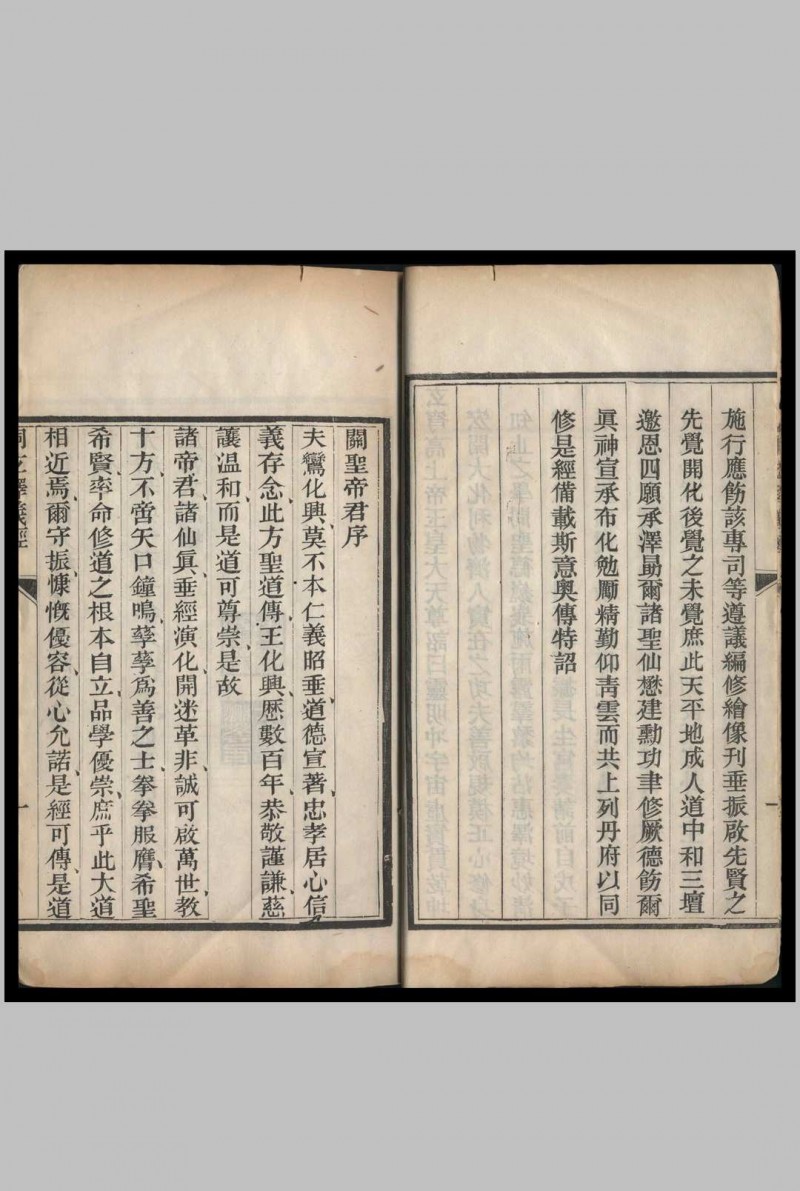 施行應飭該專司等遵議編修繪像刊垂振啟先賢之
先覺開化後覺之未覺庶此天平地成人道中和三壇
邀恩四願承澤勗爾諸聖仙懋建勳功聿修厥德飭爾
眞神宣承布化勉勵精勤仰靑雲而共上列丹府以同
修是經備載斯意奥傳特詔
關聖帝君序
夫鸞化興、莫不本仁義昭垂、道德宣著、忠孝居心信
義存念、此方聖道傳、王化興、歷數百年、恭敬謹謙、慈
讓温和、而是道可尊崇、是故
諸帝君、諸仙眞、垂經演化、開迷革非、誠可啟萬世、教
十方、不啻矢口鐘鳴、孳孳爲善之士、拳拳服膺、希聖
希賢、率命修道之根本自立、品學優崇、庶乎此大道
相近焉、爾守振、慷慨優容、從心允諾、是經可傳、是道
一